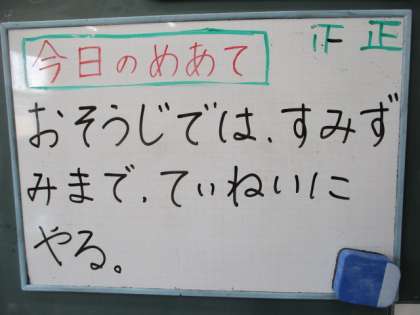 今日のめあて
正 正
おそうじでは、すみず
みまで、ていねいに
やる。